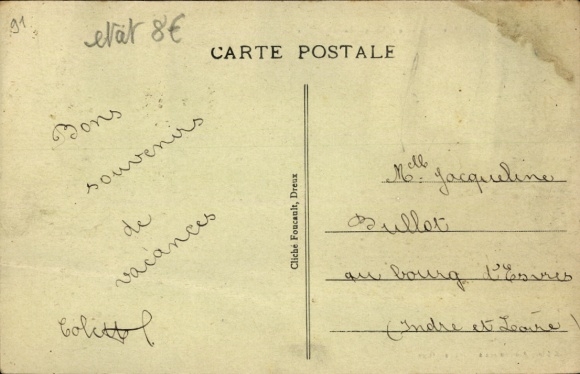 91
etat 8€
CARTE POSTALE
Bons
souvenirs
de
vacances
Cliché Foucault, Dreux
Mlle Jacqueline
Bullot
au bourg d'Esvres
(Indre et Loire)